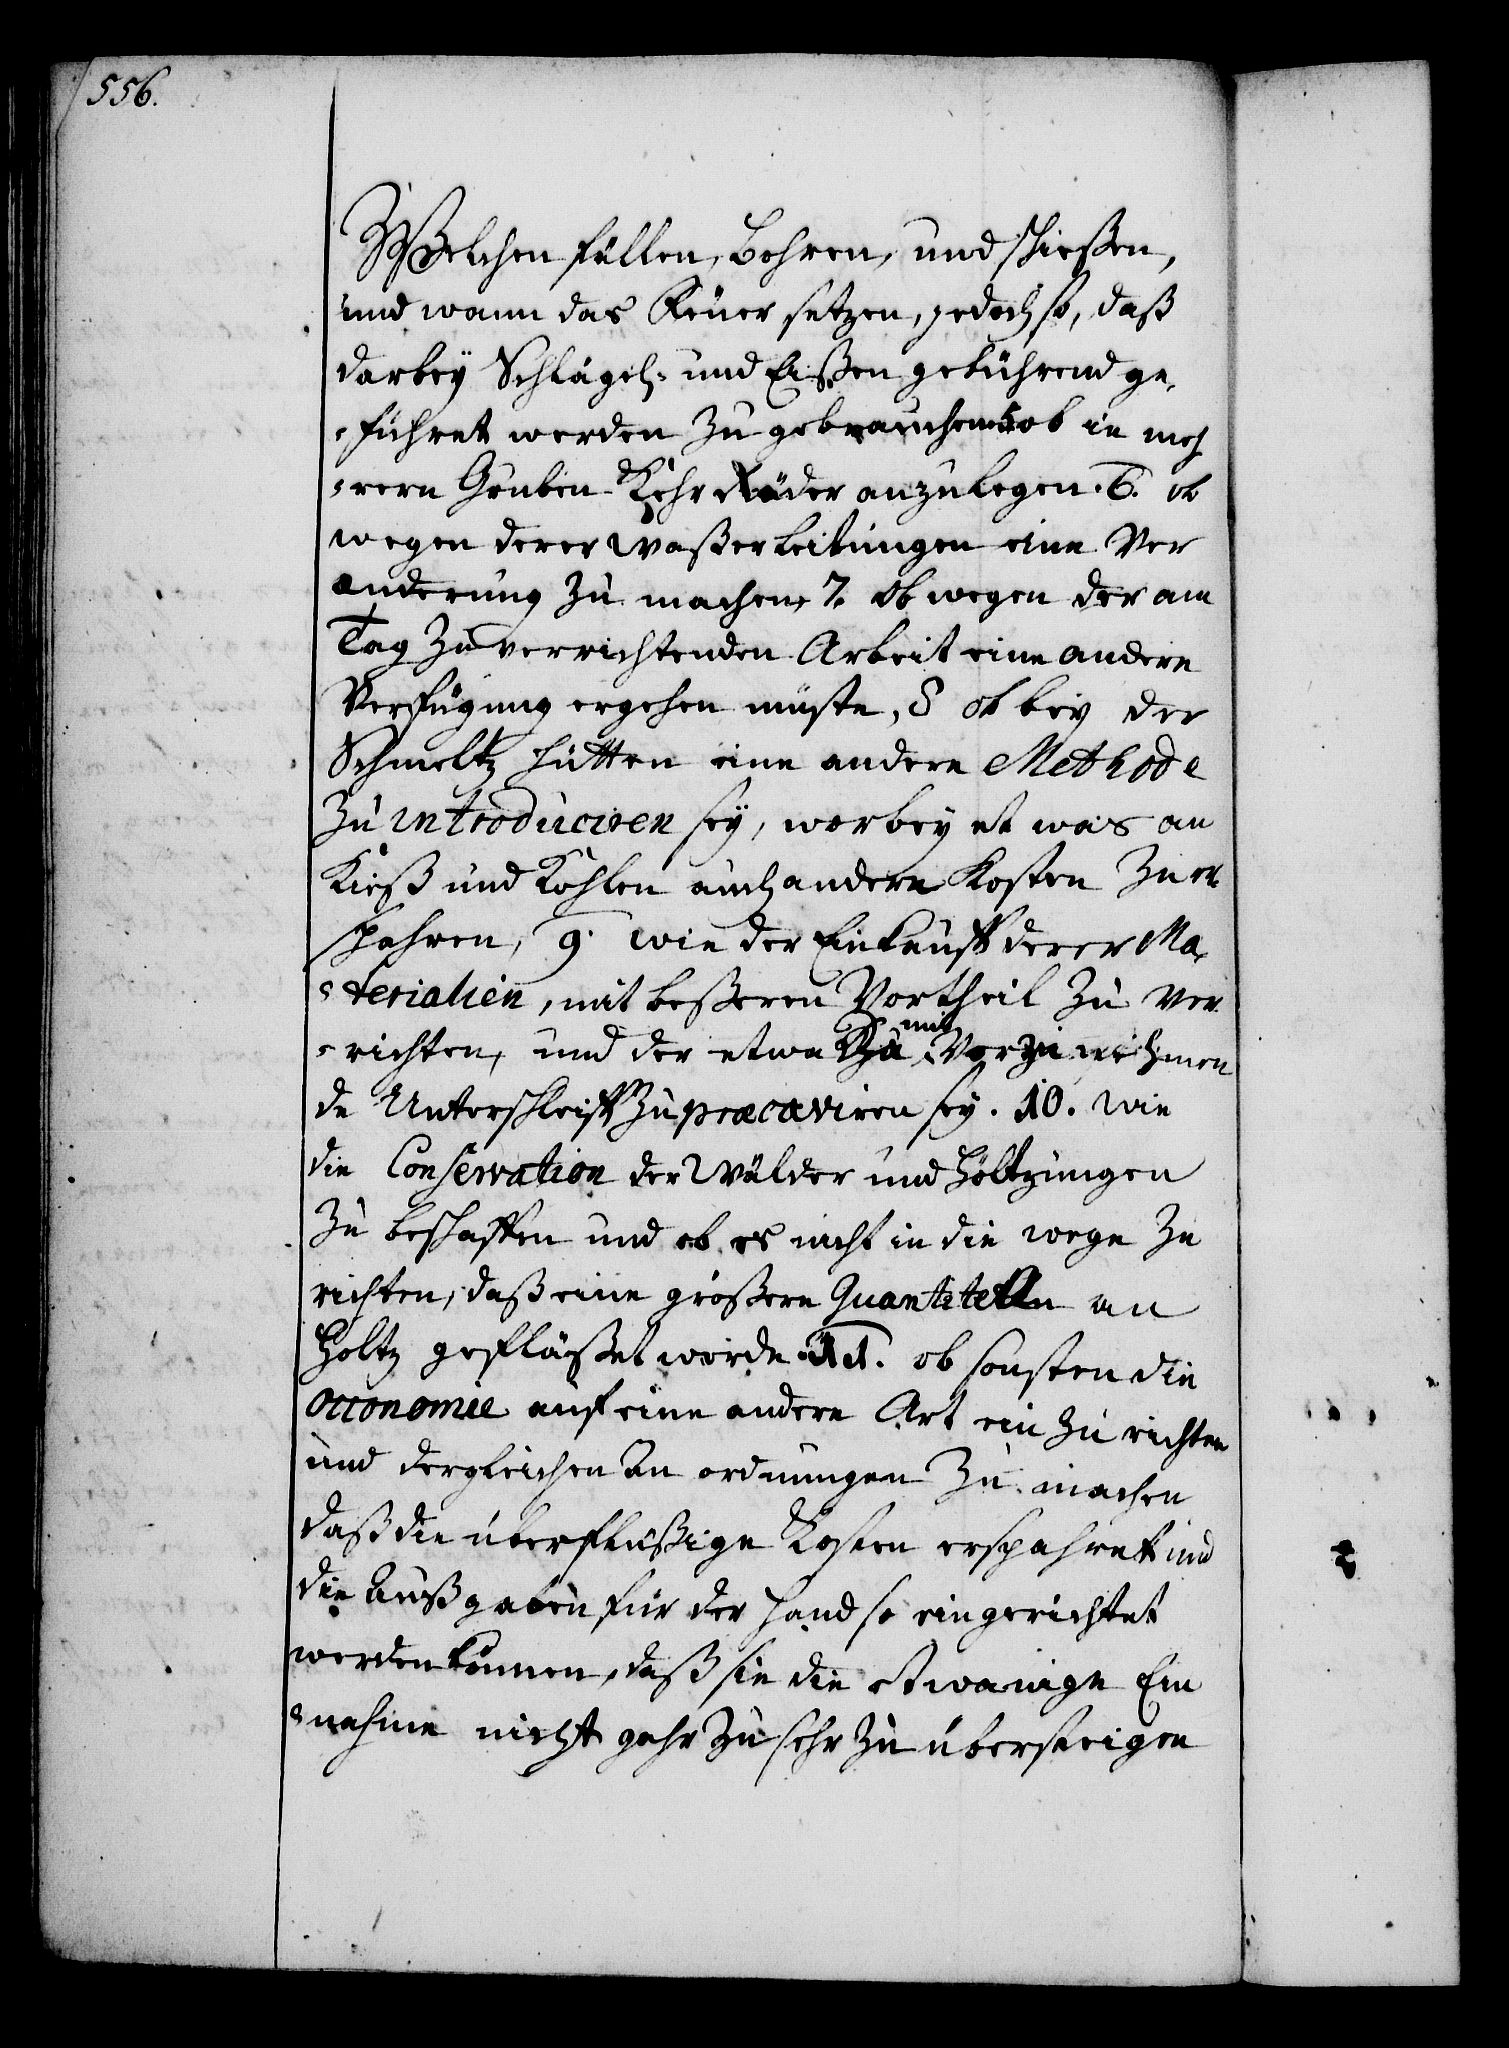 556.
Welchen fällen, Bohren, und schießen,
und wann das Feuer setzen, jedoch so, daß
darbeÿ Schlägel- und Eißen gebührend ge-
-führet werden zu gebrauchen 5 ob in meh
-rern Gruben Kehr Räder anzulegen. 6. ob
wegen derer Waßerleitungen eine Ver
anderung zu machen, 7. Ob wegen der am
Tag zu verrichtenden Arbeit eine andere
Verfügung ergehen müste, 8 ob beÿ der
Schmeltz hütten eine andere Methode
zu introduciren seÿ, worbeÿ et was an
Kieß und Kohlen auch andern Kosten zu er-
spahren, 9. wie der Einkauff derer Ma-
-terialien, mit beßeren Vortheil zu ver-
-richten, und der etwa mit Vorzunehmen
de Unterschleiff zu præcaviren seÿ. 10. wie
die Conservation der Wälder und Höltzungen
zu beschaffen und ob es nicht in die wege zu
richten, daß eine größere Quantitet an
Holtz geflößet werde. 11. ob sonsten die
Oeconomie auf eine andere Art ein zu richten
und dergleichen An ordnungen zu machen
daß die überflüßige Kosten erspahret und
die Außgaben für der Hand so eingerichtet
werden können, daß sie die etwanige Ein
-nahme nicht gahr zu sehr zu übersteigen